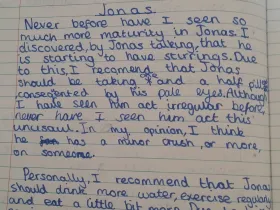 Jonas.
Never before have I seen so
much more maturity in Jonas. I
discovered, by Jonas talking, that he
is starting to have sturrings. Due
to this, I recomend that Jonas
should be taking one and a half pills
consecented by his pale eyes. Although
I have seen him act irregular before,
never have I seen him act this
unusaul. In my opinion, I think
he has a minor crush, or more,
on someone.
Personally, I recommend that Jonas
should drink more water, exercise regularly
and eat a little bit more.